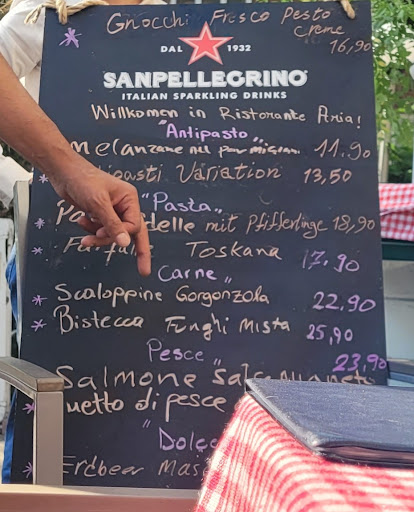 Gnocchi Fresco Pesto
creme
16,90
DAL 1932
SANPELLEGRINO
ITALIAN SPARKLING DRINKS
Willkommen in Ristorante Aria!
"Antipasto"
melanzane 11,90
Variation 13,50
"Pasta"
delle mit Pfifferlinge 18,90
Toskana 17,90
Carne"
Scaloppine Gorgonzola 22,90
Bistecca Funghi Mista 25,90
Pesce" 23,90
Salmone
di pesce
"Dolce
Erdbeer